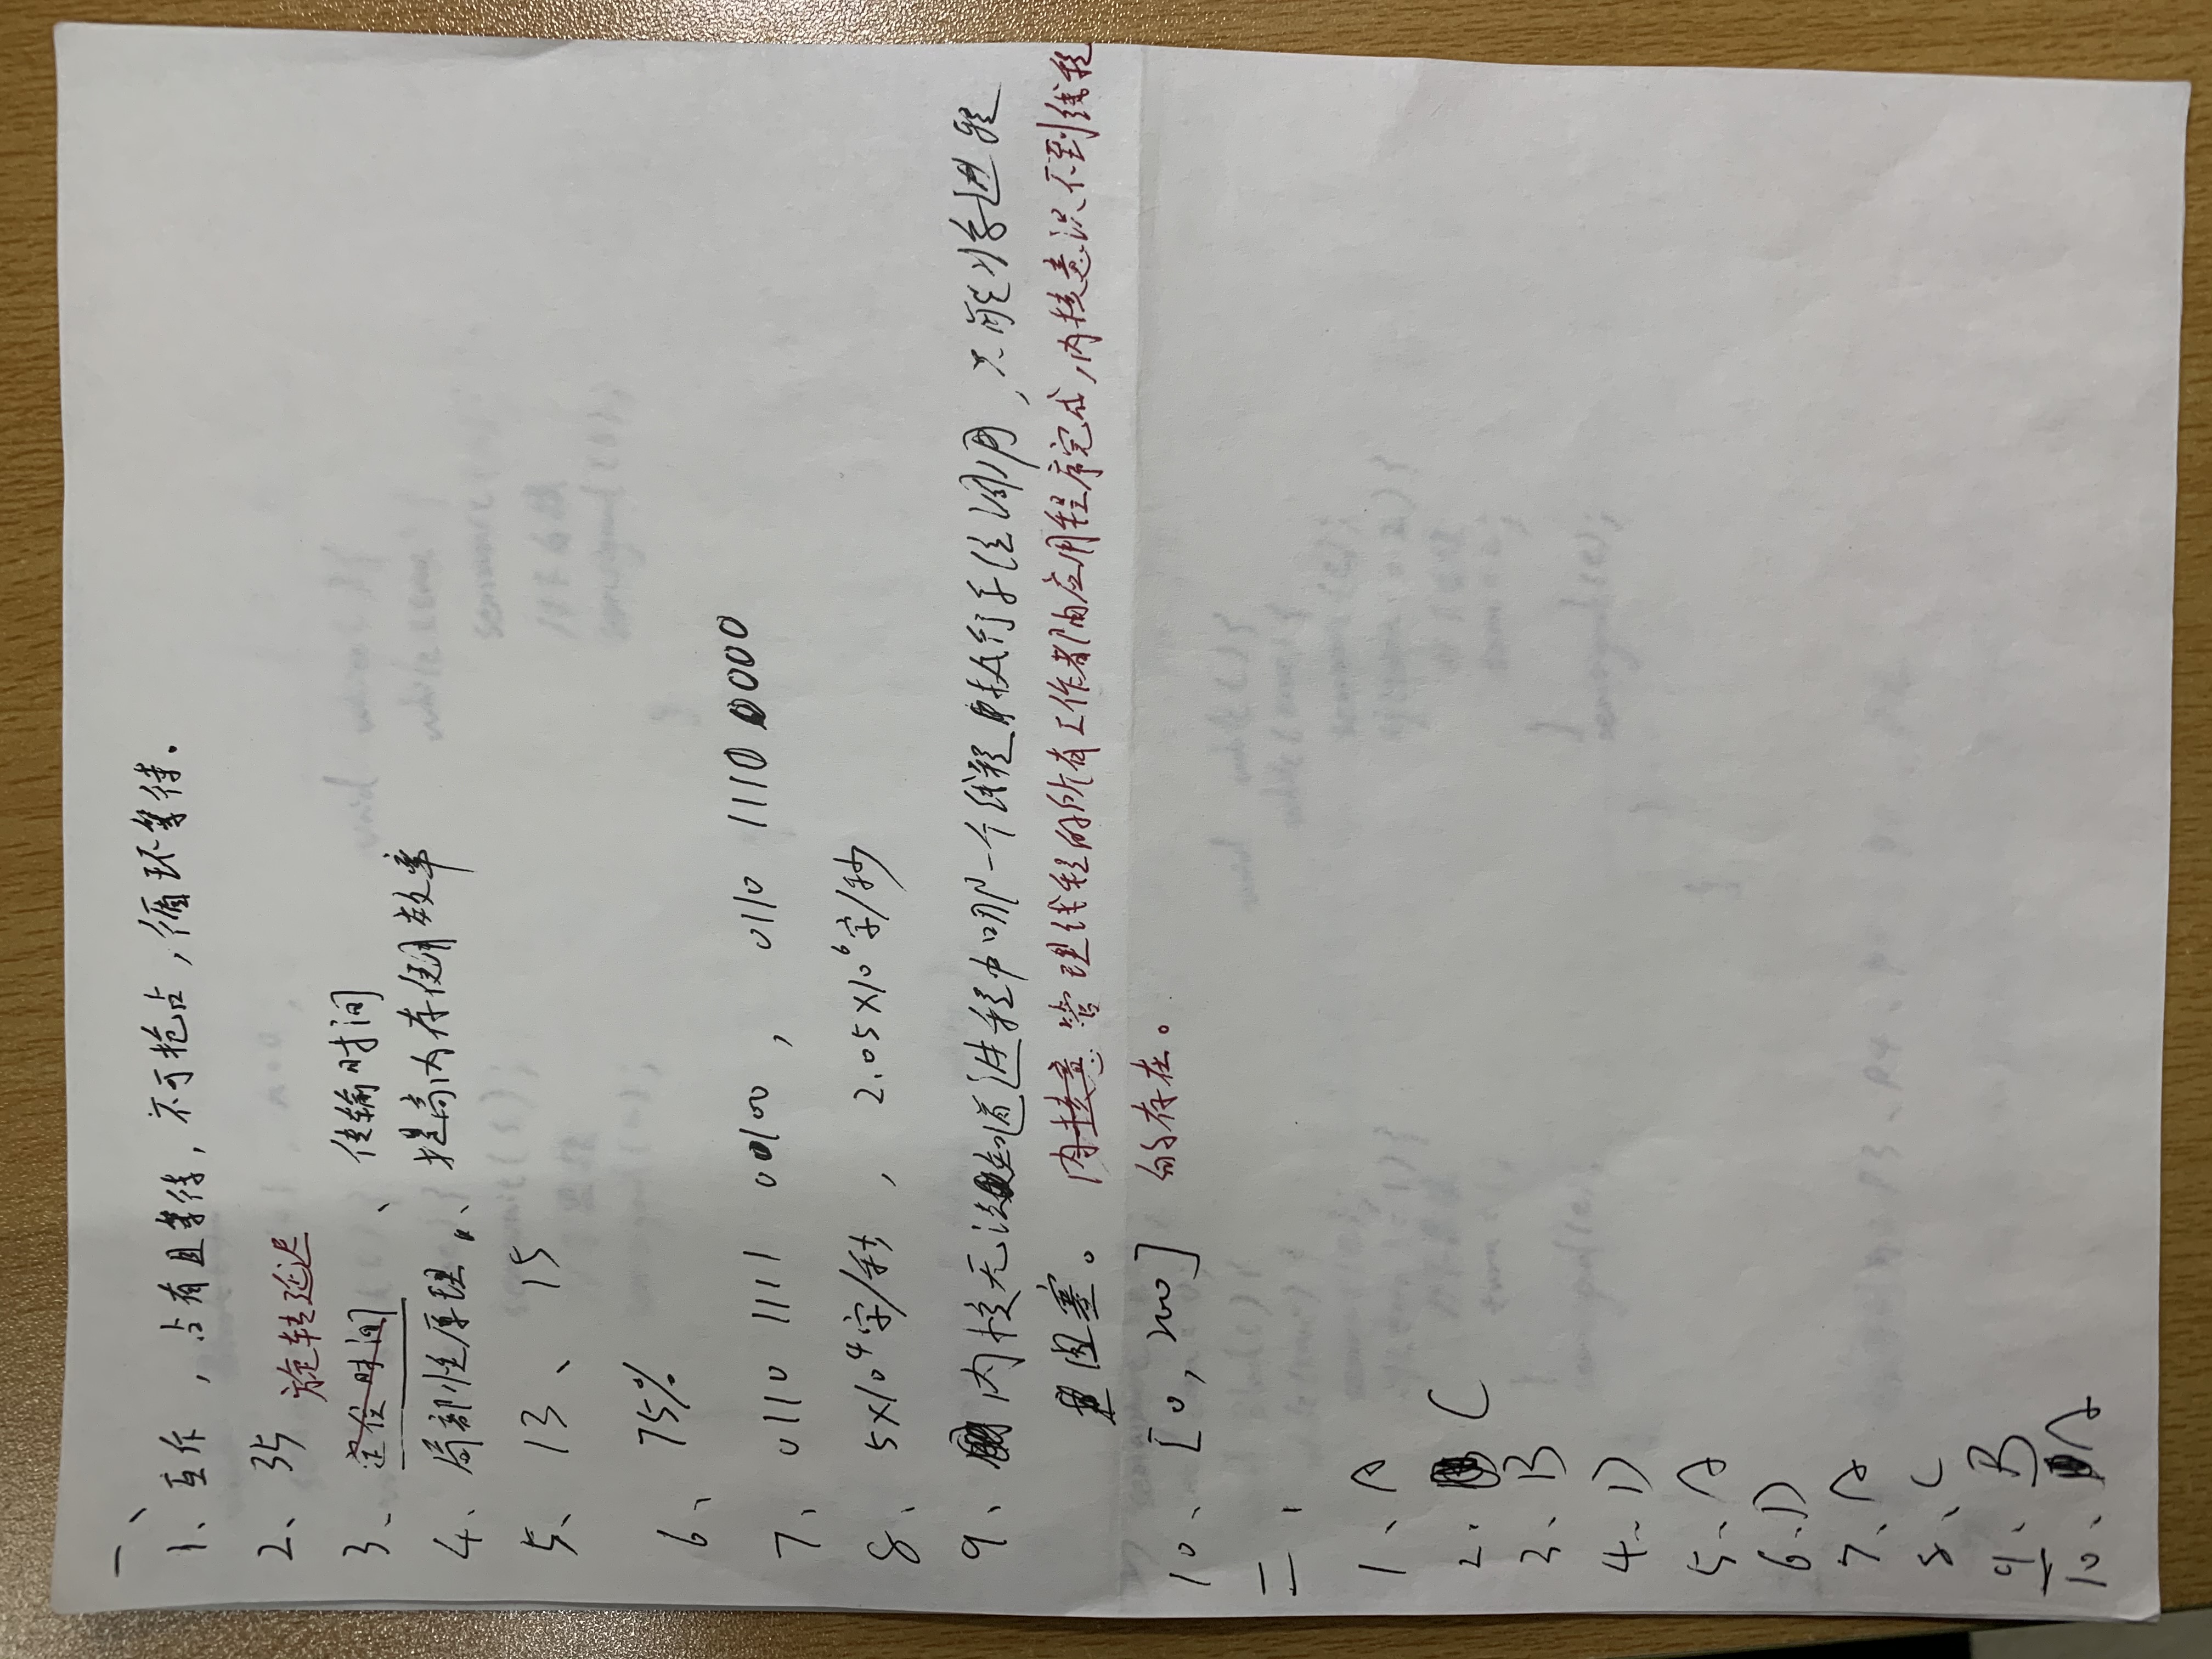 一、
1、互斥，占有且等待，不可抢占，循环等待。
2、35
旋转延迟
3、定位时间、传输时间
4、局部性原理、提高内存使用效率
5、13、15
6、75%
7、0110 1111 00100， 0110 11110 0000
8、5×10⁴字/秒， 2.05×10⁶字/秒
9、内核无法知道进程中哪一个线程执行系统调用，只能将进程
阻塞。 内核意 管理线程的所有工作都由应用程序完成，内核意识不到线程
的存在。
10、[0，200]
二、
1、A
2、C
3、B
4、D
5、A
6、D
7、A
8、C
9、B
10、A